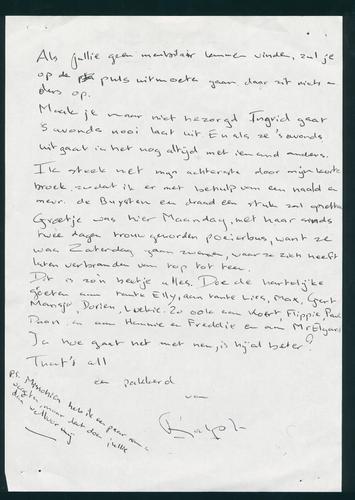 Als jullie geen menstilair kunnen vinden, zul je
op de puls uitmoeten gaan daar zit niets an-
ders op.
Maak je maar niet bezorgd Ingrid gaat
's avonds nooi laat uit En als ze 's avonds
uitgaat is het nog altijd met iemand anders.
Ik steek met mijn achterste door mijn korte
broek, zodat ik er met behulp van een naald en
mevr. de Buysten en draad een stuk zal opzetten
Greetje was hier Maandag, met haar sinds
twee dagen trouw geworden poeierbus, want ze
was Zaterdag gaan zwemmen, waar ze zich heeft
laten verbranden van top tot teen.
Dit is zo'n beetje alles. Doe de hartelijke
groeten aan tante Elly, aan tante Lies, Max, Gert
Mansje, Dorien, Loekie. Zo ook aan Koert, Flippie, Paul
Daan, en aan Hennie en Freddie en aan Mr Elgar
Ja hoe gaat het met hem, is hij al beter?
That's all
een pakkerd
van
P.S. heb ik een paar
vergeten maar dat doen jullie
dan wel voor mij